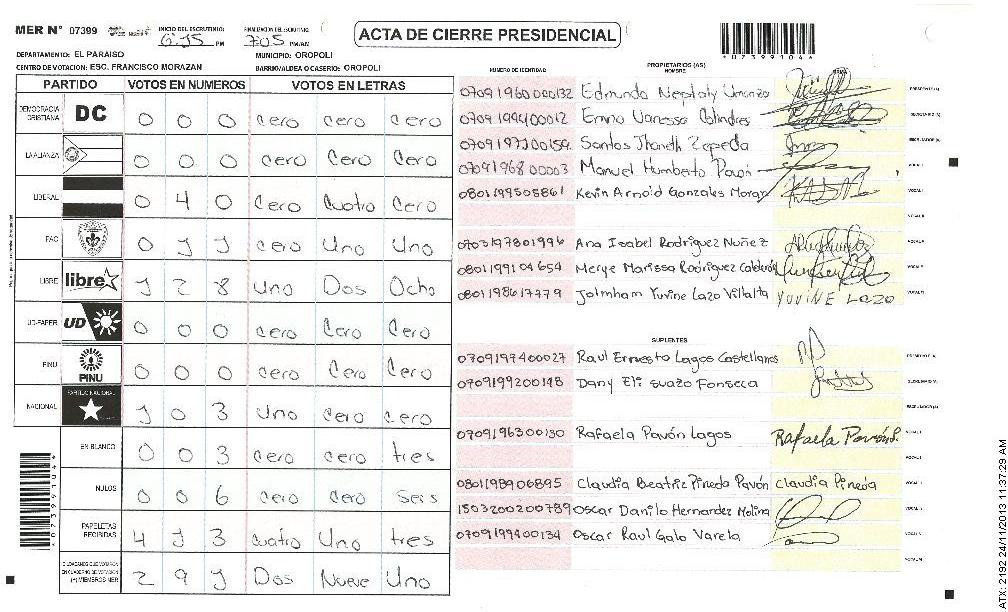 MER Nº 07399 INICIO DEL ESCRUTINIO: 6:15 PM FINALIZACIÓN DEL ESCRUTINIO: 7:05 PM/AM
ACTA DE CIERRE PRESIDENCIAL
*07399104*
DEPARTAMENTO: EL PARAISO MUNICIPIO: OROPOLI
CENTRO DE VOTACION: ESC. FRANCISCO MORAZAN BARRIO/ALDEA O CASERIO: OROPOLI
PARTIDO VOTOS EN NUMEROS VOTOS EN LETRAS
DEMOCRACIA CRISTIANA DC 0 0 0 cero cero cero
LA ALIANZA 0 0 0 cero Cero Cero
LIBERAL 0 4 0 Cero Cuatro Cero
FAC 0 1 1 cero Uno Uno
LIBRE libre 1 2 8 uno Dos Ocho
UD-FAPER UD 0 0 0 cero Cero Cero
PINU PINU 0 0 0 cero Cero Cero
NACIONAL PARTIDO NACIONAL 1 0 3 uno Cero Cero
EN BLANCO 0 0 3 cero cero tres
NULOS 0 0 6 cero cero Seis
PAPELETAS RECIBIDAS 4 1 3 cuatro Uno tres
CIUDADANOS QUE VOTARON EN CUADERNO DE VOTACION (+) MIEMBROS MER 2 9 1 Dos Nueve Uno
*07399104*
NUMERO DE IDENTIDAD PROPIETARIOS (AS) NOMBRE FIRMA
0709196000132 Edmundo Neptaly PRESIDENTE (A)
0709199400012 Emna Vanessa Colindres SECRETARIO (A)
0709197700159 Santos Jhaneth Zepeda ESCRUTADOR (A)
0709196800003 Manuel Humberto Pavón VOCAL I
0801199505861 Kevin Arnold Gonzales VOCAL II
0703197801996 Ana Isabel Rodriguez Nuñez
0801199104654 Merye Marissa Rodriguez Calderón
0801198617779 Yuvine Lazo Villalta YUVINE LAZO
SUPLENTES
0709197400027 Raul Ernesto Lagos Castellanos PRESIDENTE (A)
0709199200148 Dany Eli Suazo Fonseca SECRETARIO (A)
ESCRUTADOR (A)
0709196300130 Rafaela Pavón Lagos Rafaela Pavón L. VOCAL I
0801198906895 Claudia Beatriz Pineda Pavón Claudia Pineda
1503200200789 Oscar Danilo Hernandez Molina
0709199400134 Oscar Raul Galo Varela
ATX: 2192 24/11/2013 11:37:29 AM